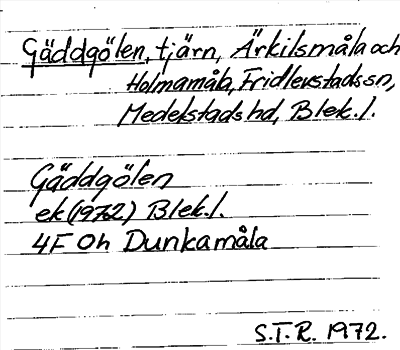 Gäddgölen, tjärn, Ärkilsmåla och
Holmamåla, Fridlevstads sn,
Medelstads hd, Blek. l.
Gäddgölen
ek (1972) Blek. l.
4F 0h Dunkamåla
S.T.R. 1972.